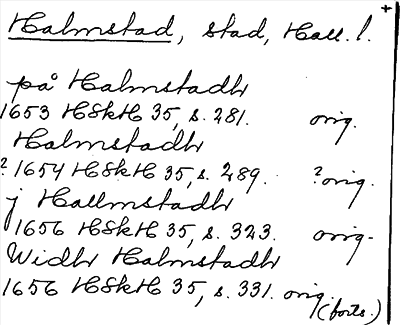 Halmstad, stad, Hall. l.
på Halmstadh
1653 HSkH 35, s. 281. orig.
Halmstadh
? 1654 HSkH 35, s. 289. ? orig.
j Hallmstadh
1656 HSkH 35, s. 323. orig.
Widh Halmstadh
1656 HSkH 35, s. 331. orig.
(forts.)